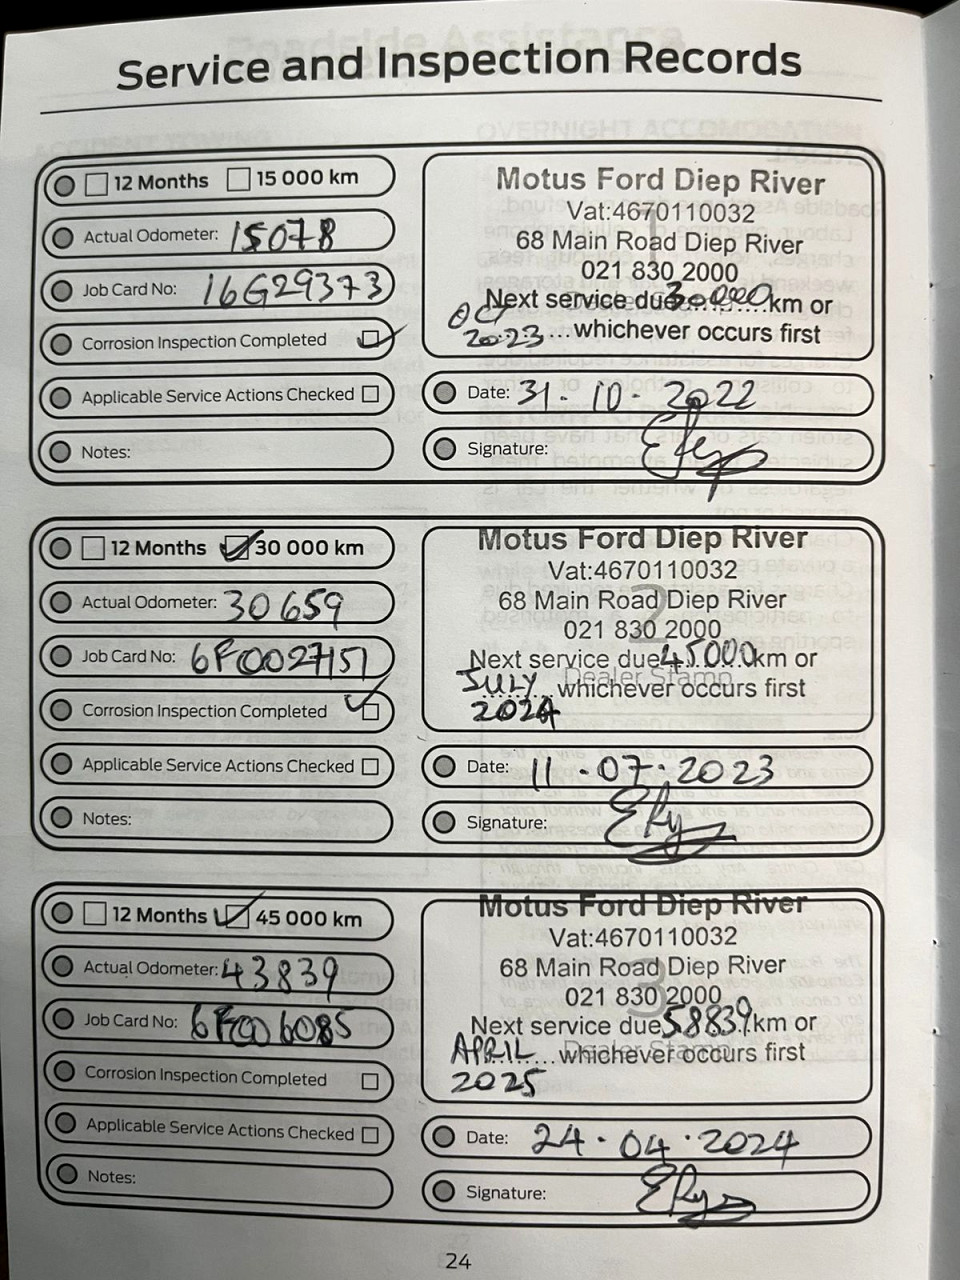 Service and Inspection Records
12 Months 15 000 km
Actual Odometer: 15078
Job Card No: 16G29373
Corrosion Inspection Completed
Applicable Service Actions Checked
Notes:
1
Motus Ford Diep River
Vat:4670110032
68 Main Road Diep River
021 830 2000
Next service due 30000 km or
OCT 2023 whichever occurs first
Date: 31-10-2022
Signature:
12 Months 30 000 km
Actual Odometer: 30659
Job Card No: 6F0027151
Corrosion Inspection Completed
Applicable Service Actions Checked
Notes:
2
Motus Ford Diep River
Vat:4670110032
68 Main Road Diep River
021 830 2000
Next service due 45000 km or
Dealer Stamp
JULY whichever occurs first
2024
Date: 11-07-2023
Signature:
12 Months 45 000 km
Actual Odometer: 43839
Job Card No: 6F006085
Corrosion Inspection Completed
Applicable Service Actions Checked
Notes:
3
Motus Ford Diep River
Vat:4670110032
68 Main Road Diep River
021 830 2000
Next service due 58839 km or
Dealer Stamp
APRIL whichever occurs first
2025
Date: 24.04.2024
Signature:
24